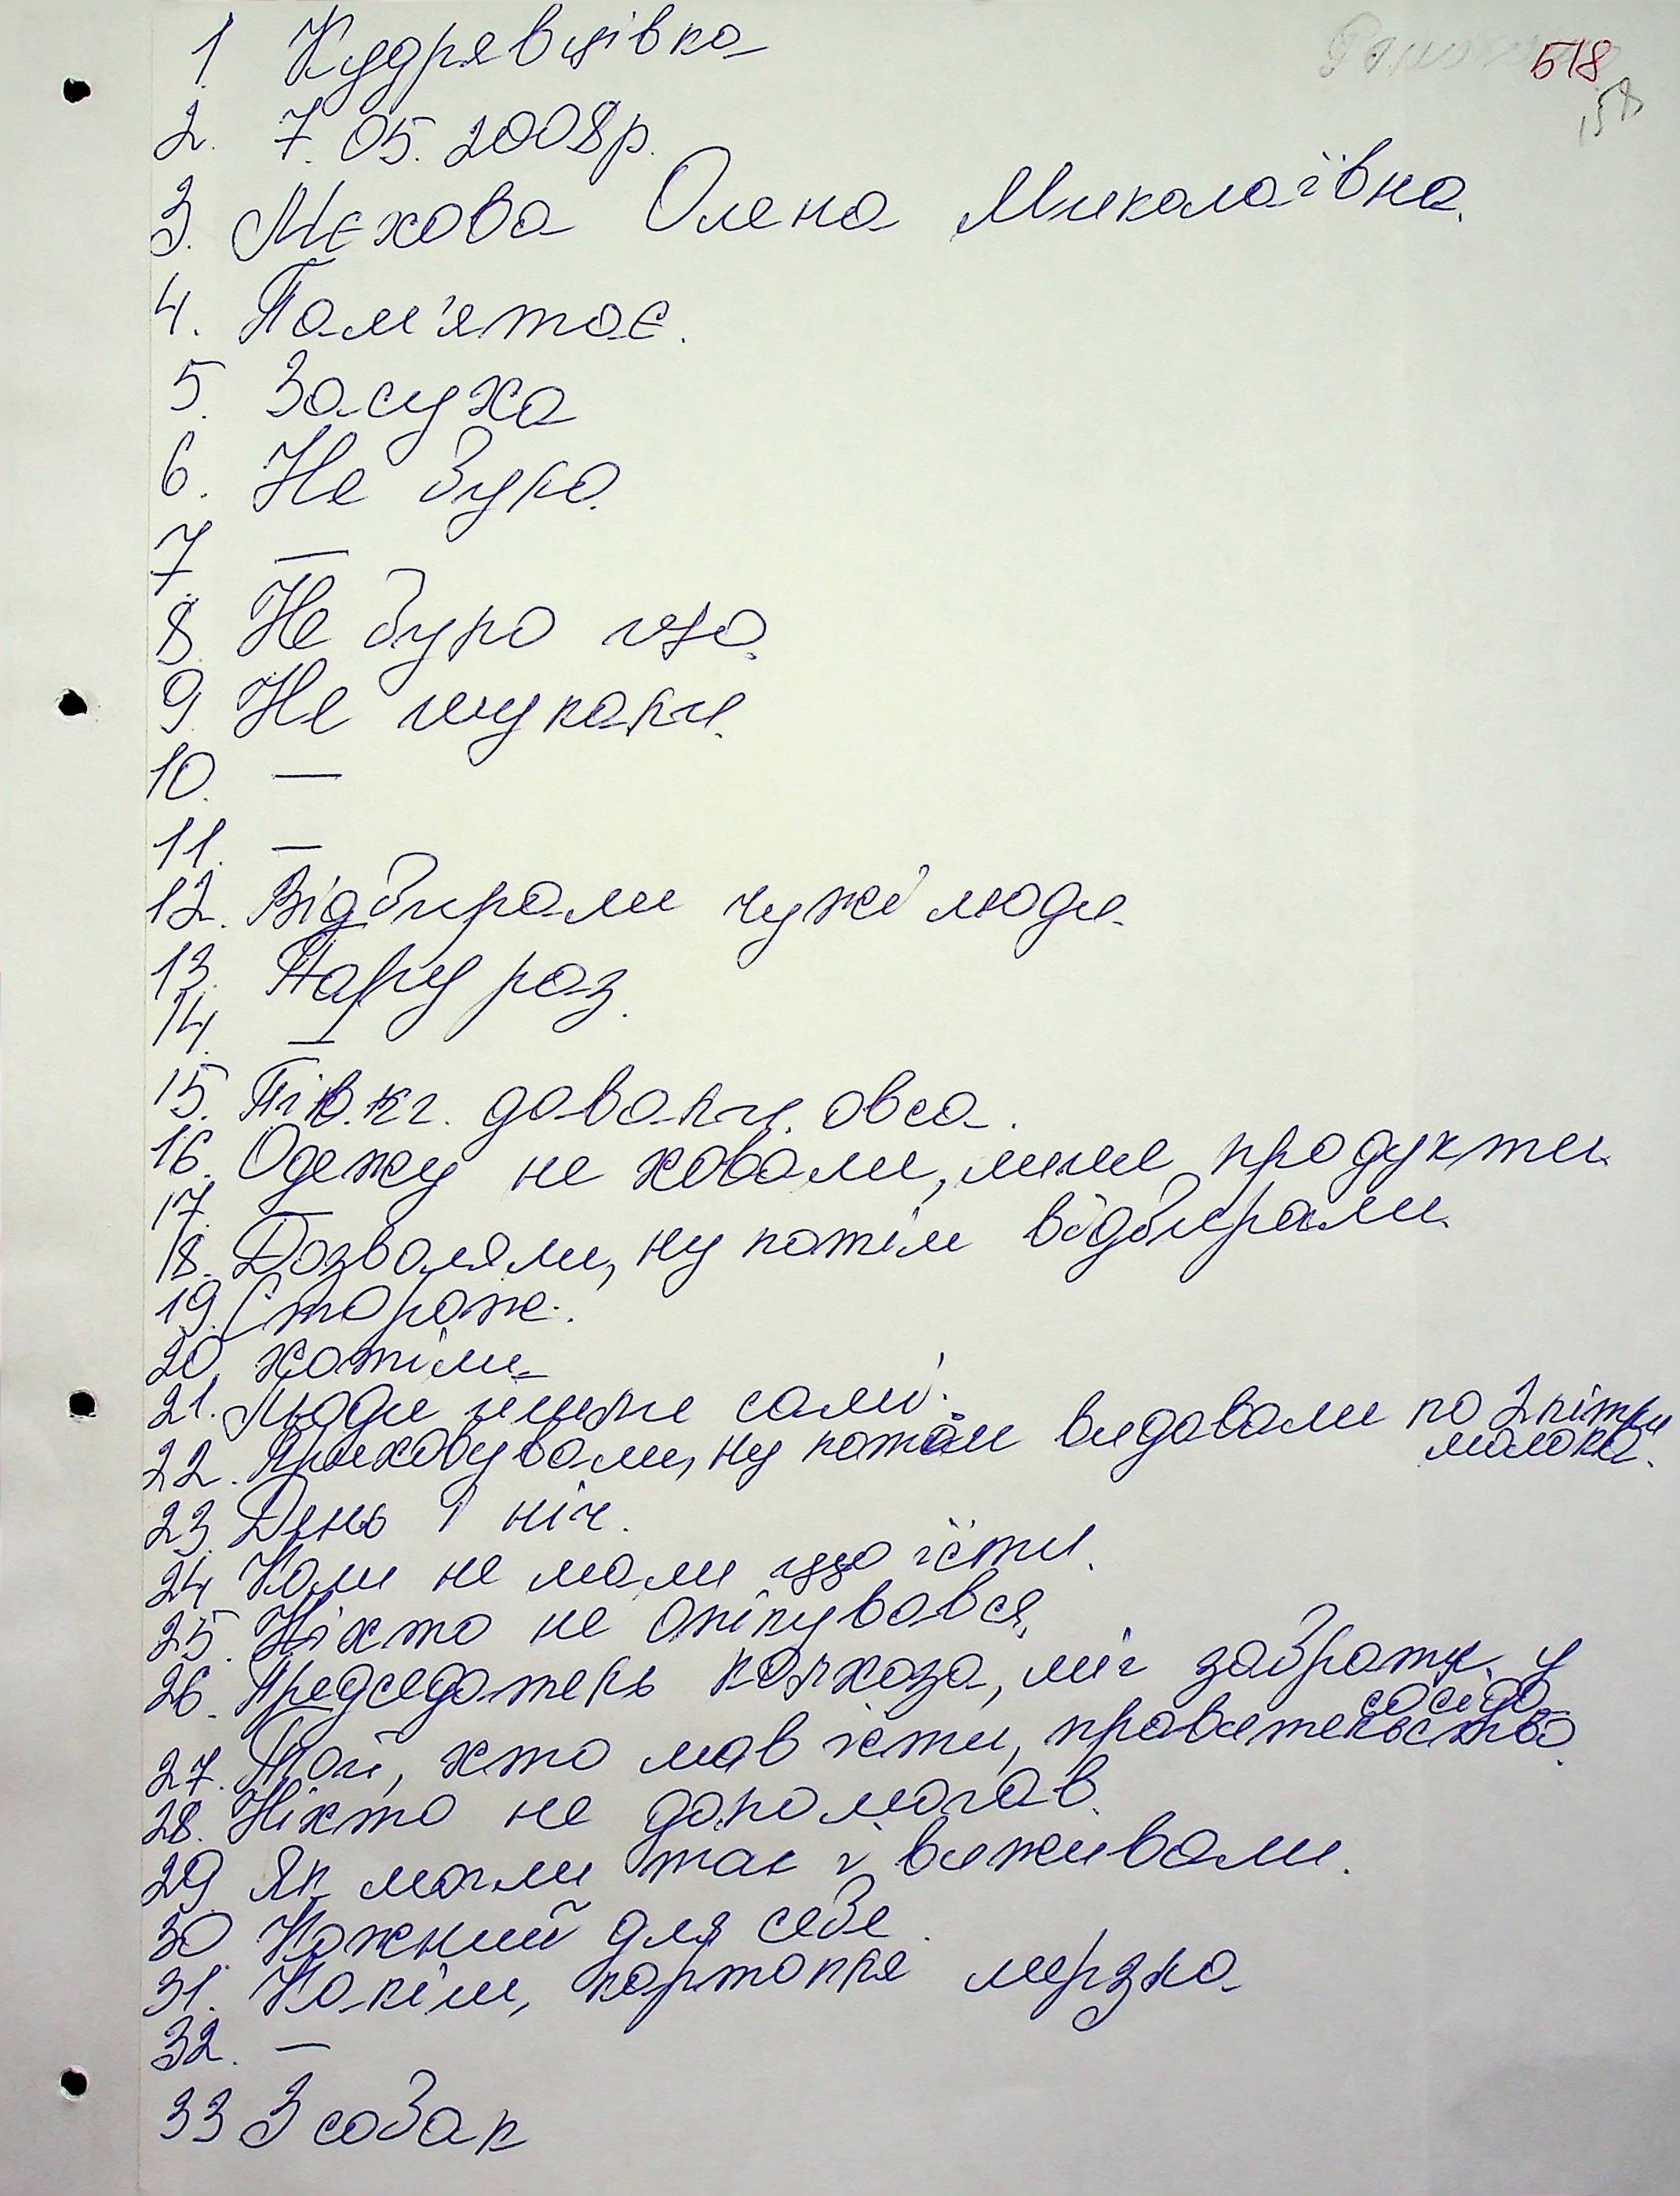 518
158
1 Кудрявцівка
2. 7. 05. 2008р.
3. Мєхова Олена Миколаївна.
4. Пам'ятає.
5. Засуха
6. Не було.
7 —
8. Не було що.
9. Не шукали.
10. —
11. —
12. Відбирали чужі люди.
13. Пару раз.
14. —
15. Пів.кг. давали. овса.
16. Одежу не ховали, лише продукти
17. —
18. Дозволяли, ну потім відбирали.
19. Сторож.
20. хотіли
21. Люди ішли самі.
22. Приховували, ну потім видавали по 2 літри
молока.
23. День і ніч.
24 Коли не мали що їсти.
25. Ніхто не опікувався.
26. Председатель колхоза, міг забрати у
соседа
27. Той, хто мав їсти, правительство.
28. Ніхто не допомагав.
29 Як могли так і виживали.
30 Кожний для себе.
31. Калім, картопля мерзла
32. —
33 З собак